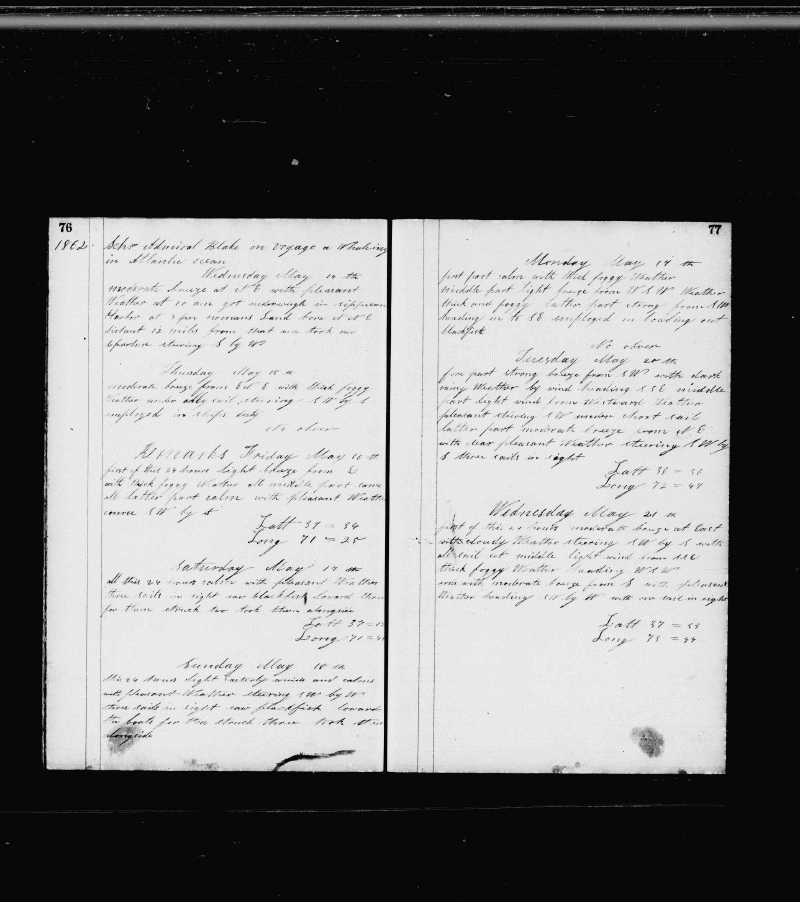 76
1862
Schr Admiral Blake on voyage a Whaleing
in Atlantic ocean
Wednesday May 14 th
moderate breeze at N E with pleasant
Weather at 10 am got underweigh in sippican
Harbor at 3 pm nomans Land bore N N E
distant 12 miles from that we took our
steering S by W
Thursday May 15 th
moderate breeze from E with thick foggy
Weather under all sail steering S W by S
employed in ships duty
No obser
Remarks Friday May 16 th
first of this 24 hours light breeze from E
with thick foggy Weather all middle part came
all latter part calm with pleasant Weather
course S W by S
Latt 37 = 34
Long 71 = 25
Saturday May 17 th
all this 24 hours calm with pleasant Weather
three sails in sight saw blackfish Lowerd
for them struck two took them alongside
Latt 37 =
Long 71 =
Sunday May 18 th
this 24 hours light easterly winds and calms
with pleasant Weather steering S W by W
three sails in sight saw blackfish lowerd
the boats for them struck three took them
alongside
77
Monday May 19 th
first part calm with thick foggy Weather
middle part light breeze from W S W Weather
thick and foggy latter part strong from
heading in to S E employed in
blackfish
No obser
Tuesday May 20 th
fore part strong breeze from S W with dark
rainy Weather by wind heading S S E middle
part light wind from Westward Weather
pleasant steering S W under short sail
latter part moderate breeze from N E
with clear pleasant Weather steering S W by
S three sails in sight
Latt 38 = 30
Long 72 = 47
Wednesday May 21 th
first of this 24 hours moderate breeze at East
with cloudy Weather steering S W by S with
all sail set middle light wind from S S E
thick foggy Weather heading W S W
ends with moderate breeze from S with pleasant
Weather heading S W by W with one sail in sight
Latt 37 = 33
Long 73 = 44